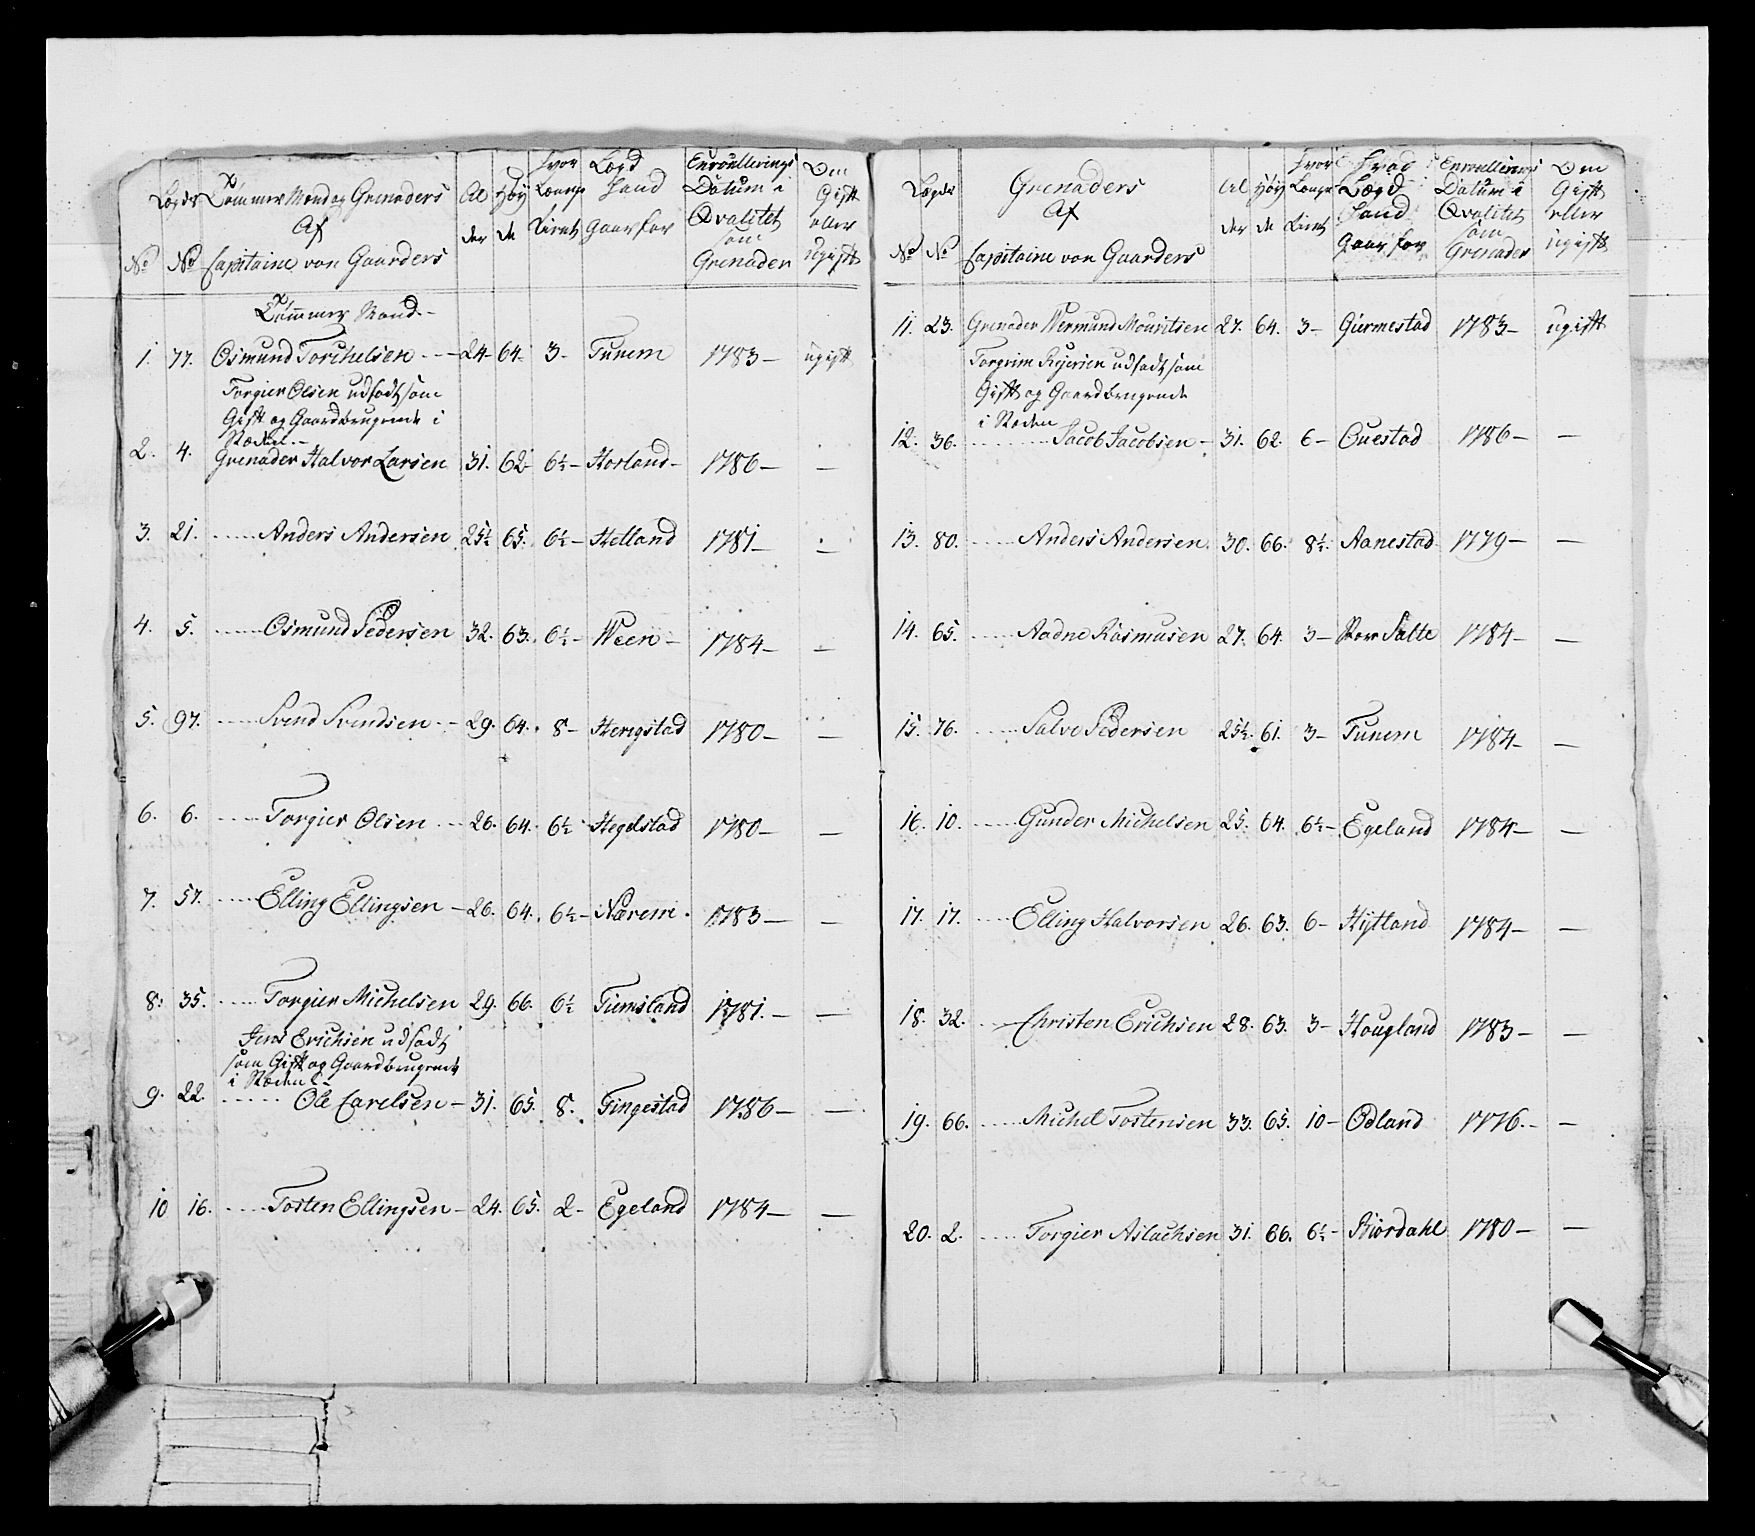 Lægds Tømmer Mand og Grenaders
Af
No No Capitaine von Gaarders
Al
der
Høy
de
hvor
Længe
tient
Lægd
hand
Gaar for
Enroullerings
Datum i
Qvalitet
som
Grenader
Om
Gift
eller
ugift
Tømmer Mand.-
1. 77. Osmund Torchelsen - - 24. 64. 3- Tunem 1783- ugift
Torgier Olsen udfodt som
Gift og Gaardbrugende i
Stæden.-
2. 4. Grenader Halvor Larsen 31. 62. 6½- Horland- 1786- -
3. 21. ..... Anders Andersen 25½ 65. 6½- Helland 1781- -
4. 5. ..... Osmund Pedersen 32. 63. 6½- Ween- 1784- -
5. 97. ..... Svend Svendsen - - 29. 64. 8- Herigstad 1780- -
6. 6. ..... Torgier Olsen - - 26. 64. 6½ Hegelstad 1780- -
7. 57. ..... Elling Ellingsen - 26. 64. 6½- Nærem. 1783- -
8. 35. ..... Torgier Michelsen 29. 66. 6½ Tiemsland 1781.- -
Jens Erichsen udfodt
som Gift og Gaardbrugende
i Stæden.-
9. 22. ..... Ole Carelsen - 31. 65. 8. Tingestad 1786- -
10 16. ..... Tosten Ellingsen - 24. 65. 2- Egeland 1784- -
Lægds Grenaders
Af
No No Capitaine von Gaarders
Al
der
Høy
de
hvor
Længe
tient
Hvad
Lægd
hand
Gaar for
Enroullerings
Datum i
Qvalitet
som
Grenader
Om
Gift
eller
ugift
11. 23. Grenader Wermund Mouritsen 27. 64. 3- Giermestad 1783- ugift
Torgrim Reiersen udfodt som
Gift og Gaardbrugende
i Stæden
12. 36. ..... Jacob Jacobsen - 31. 62. 6- Ouestad 1786- -
13. 80. ..... Anders Andersen. 30. 66. 8½. Aanestad 1779- -
14. 65. ..... Aadne Rasmusen 27. 64. 3- Stor Salte 1784- -
15. 76. ..... Salve Pedersen 25½. 61. 3- Tunem 1784- -
16. 10. ..... Gunder Michelsen 25. 64. 6½- Egeland 1784- -
17. 17. ..... Elling Halvorsen 26. 63. 6- Hytland 1784- -
18. 32. ..... Christen Erichsen 28. 63. 3- Hougland 1783- -
19. 66. ..... Michel Tostensen 33. 65. 10- Odland 1776.- -
20. 2. ..... Torgier Aslachsen 31. 66. 6½- Stiørdahl 1780- -